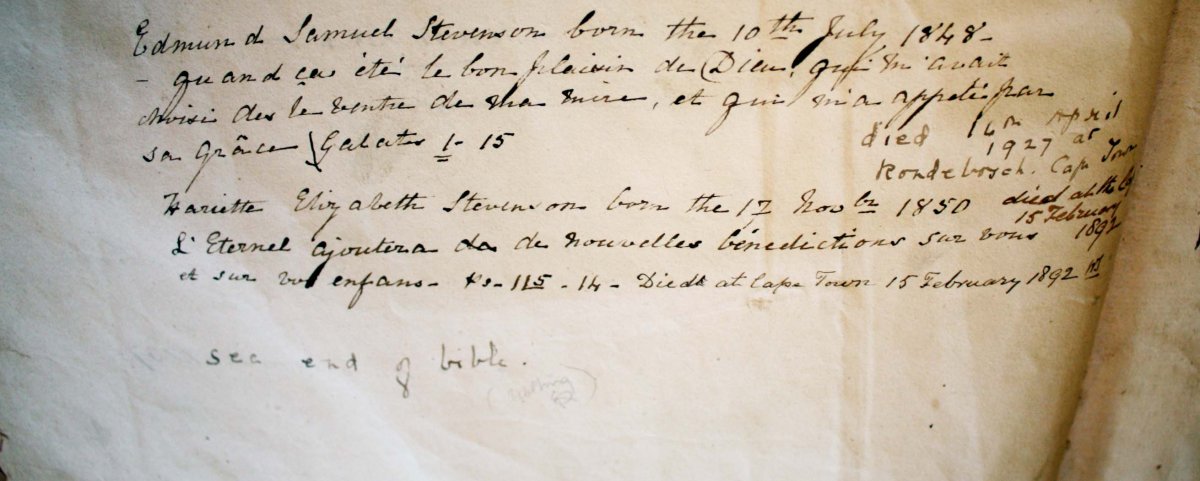 Edmund Samuel Stevenson born the 10th July 1848-
- quand ça été le bon plaisir de Dieu, qui m'avait
choisi des le ventre de ma mire, et qui m'a appelé par
sa Grâce Galates 1- 15
died 14th April
1927 at
Rondebosch. Cape Town
Hariette Elizabeth Stevenson born the 17 Novbr 1850
died at the
15 February
1892
L'Eternel ajoutera de de nouvelles bénédictions sur vous
et sur vos enfans- Ps- 115 - 14- Died at Cape Town 15 February 1892
see end of bible.
(nothing